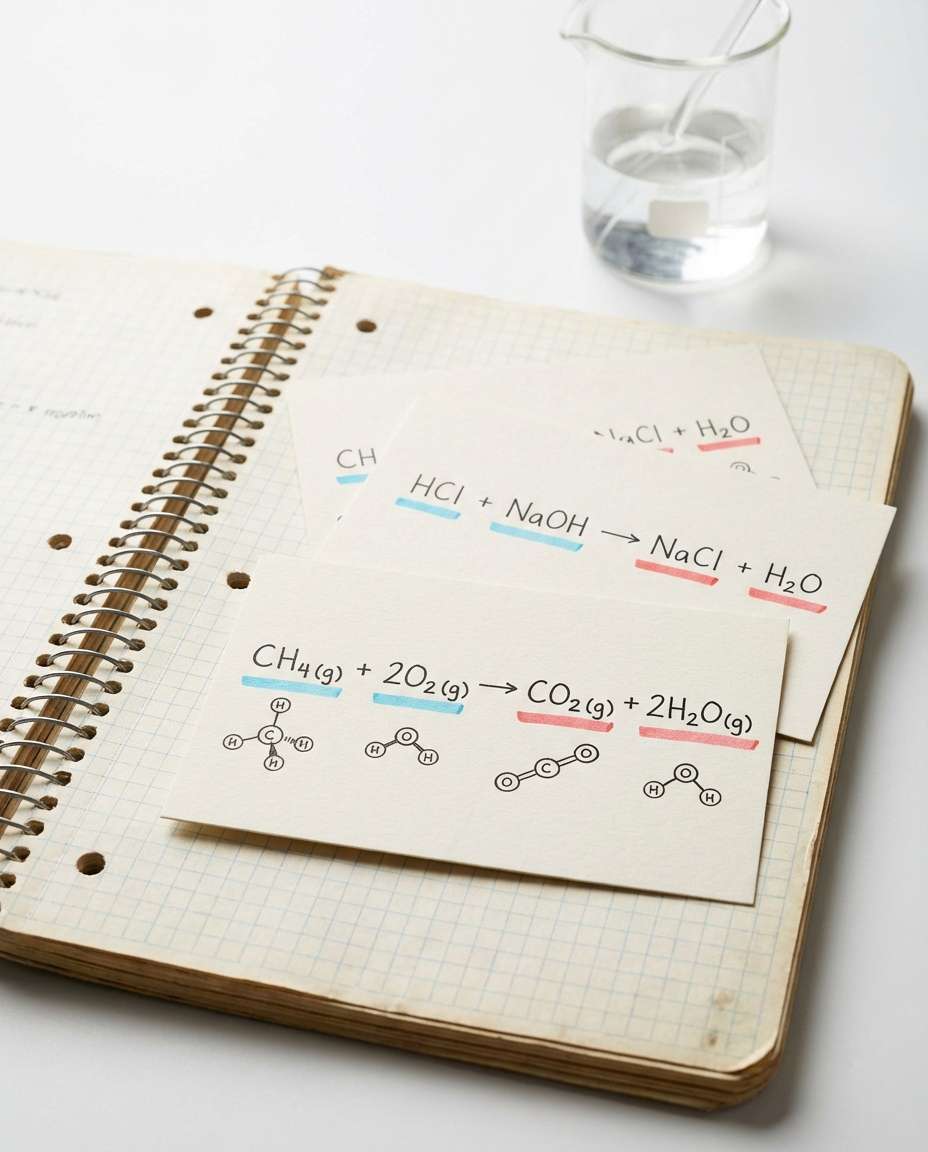 NaCl + H₂O
CH
HCl + NaOH → NaCl + H₂O
CH₄(g) + 2O₂(g) → CO₂(g) + 2H₂O(g)
H
H C H
H
O
H H
O C O
O
H H